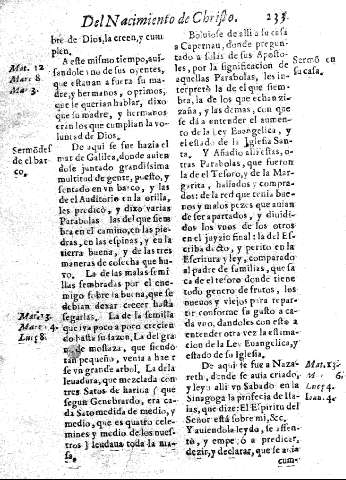 Del Nacimiento de Christo. 233
bre de Dios, la creen, y cum-
plen.
A este mismo tiempo, aui-
sandole vno de sus oyentes,
que estauan a fuera su ma-
dre, y hermanos, o primos,
que le querian hablar, dixo
que su madre, y hermanos
eran los que cumplian la vo-
luntad de Dios.
De aqui se fue hazia el
mar de Galilea, donde auien
dose juntado grandissima
multitud de gente, puesto, y
sentado en vn barco, y las
de el Auditorio en la orilla,
les predicò, y dixo varias
Parabolas: las del que siem-
bra en el camino, en las pie-
dras, en las espinas, y en la
tierra buena, y de las tres
maneras de cosecha que hu-
vo. La de las malas semi
llas sembradas por el ene-
migo sobre la buena, que se
debian dexar crecer hasta
segarlas. La de la semilla
que iva poco a poco crecien
do hasta su sazon. La del gra
no de mostaza, que siendo
tan pequeño, venia a haçer
se vn grande arbol. La de la
leuadura, que mezclada con
tres Satos de harina (que
segun Genebrardo, era ca-
da Sato medida de medio, y
medio, que es quatro cele-
mines y medio de los nues-
tros) leudaua toda la ma-
sa.
Mat. 12
Mar. 8
Mat. 3.
Sermõ des
de el bar-
co.
Mat. 13.
Marc. 4.
Luc. 8.
Boluiose de alli a su casa
a Capernau, donde pregunt-
tado a solas de sus Aposto-
les, por la significacion de
aquellas Parabolas, les in-
terpretò la de el que siem-
bra, la de los que echan ziza-
ñia, y las demas, con que
se dà a entender el aumen-
to de la Ley Euangelica, y
el estado de la Iglesia San-
ta. Y Añadio alli estas, o-
tras Parabolas, que fueron
la de el Tesoro, y de la Mar-
garita, hallados y compra-
dos: de la red que tenia bue-
nos y malos pezes que auian
de ser apartados, y diuidi-
dos los vnos de los otros
en el juyzio final: la del Es-
criba docto, y perito en la
Escritura y ley, comparado
al padre de familias, que sa
ca de el tesoro donde tiene
todo genero de frutos, los
nueuos y viejos para repar-
tir conforme su gusto a ca-
da vno, dandoles con esto a
entender otra vez la estima-
cion de la Ley Euangelica, y
estado de su Iglesia.
De aqui se fue a Naza-
reth, donde se auia criado,
y leyò alli vn Sabado en la
Sinagoga la profecia de Isa-
ias, que dize: El Espiritu del
Señor està sobre mi, &c.
Y auiendola leydo, se assen-
tò, y empeçò a predicar,
dezir, y declarar, que se auia
cum-
Sermõ en
su casa.
Mat. 13.
M 6.
Luc. 4.
Ioan. 4.